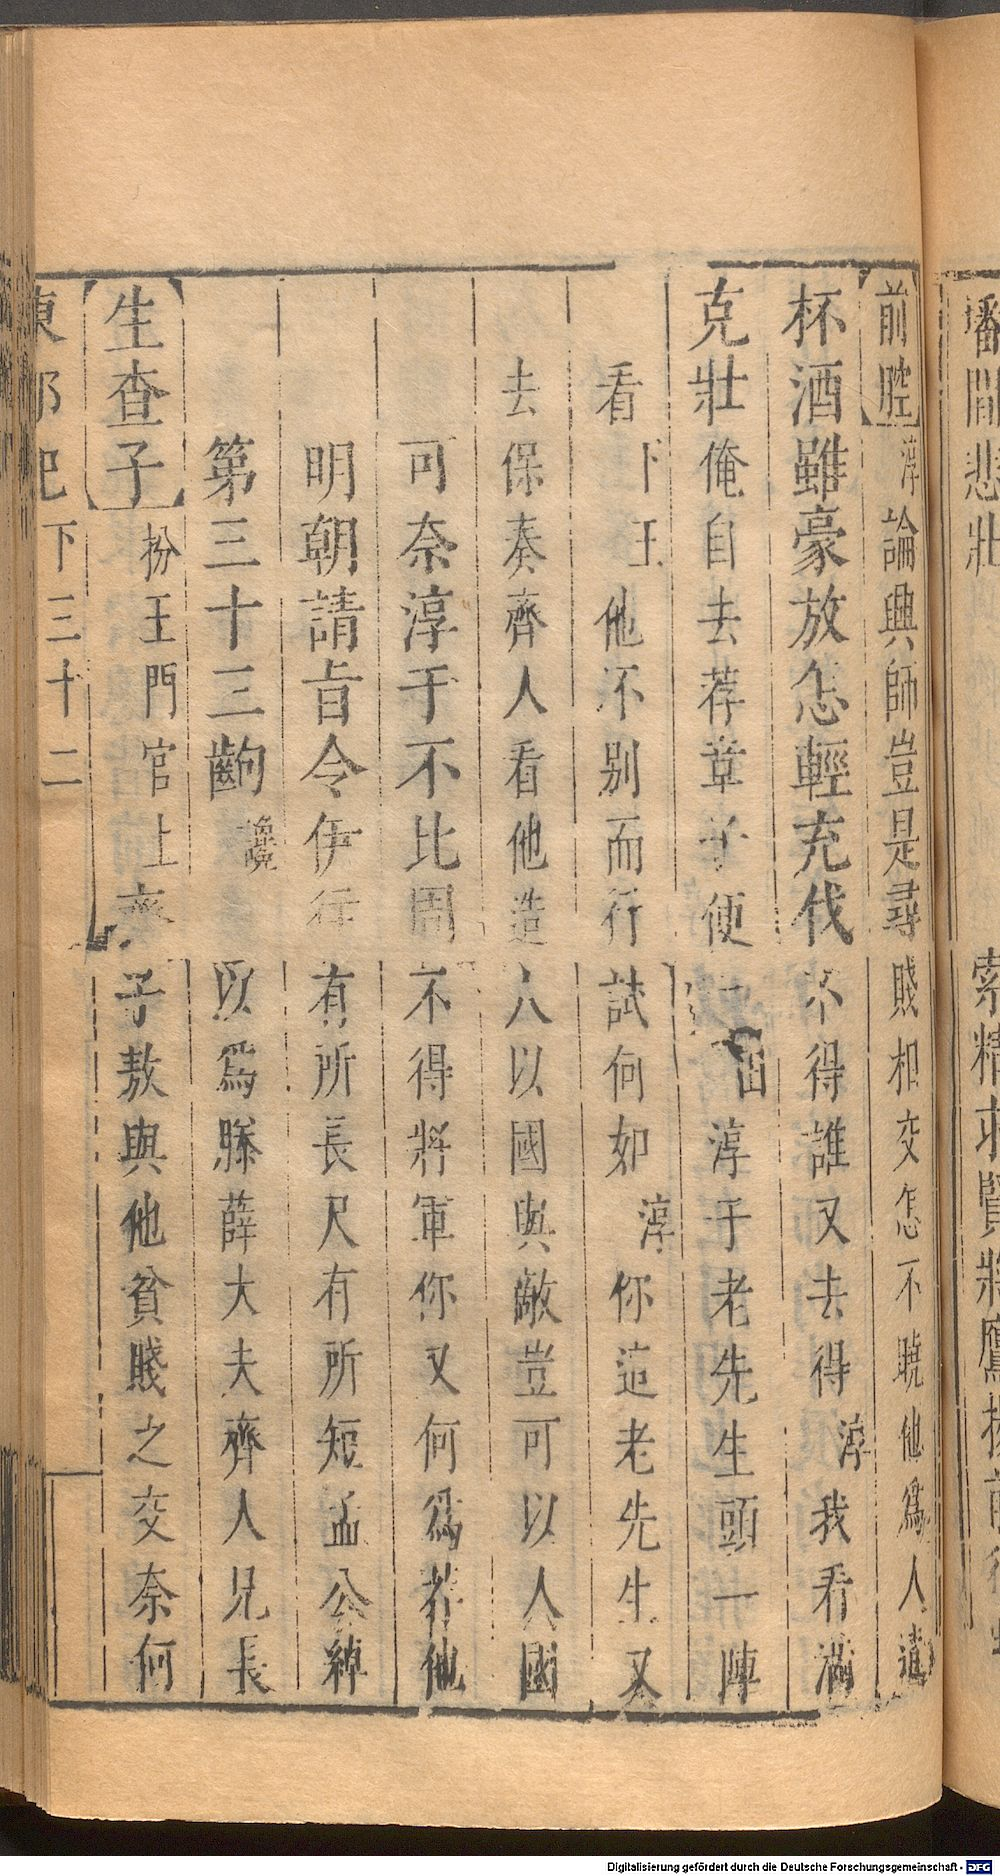 間悲壯　索精求賢將鷹
前腔　淳論興師豈是尋賤相交怎不曉他爲人遺
杯酒雖豪放怎輕充伐不得誰又去得淳我看滿
克壯俺自去荐章子便淳于老先生頭一陣
看卜王他不别而行試何如淳你這老先生又
去保奏齊人看他造人以國與敵豈可以人國
可奈淳于不比周不得將軍你又何爲荐他
明朝請旨令伊行有所長尺有所短孟公綽
第三十三齣　以爲滕薛大夫齊人兄長
生查子　扮王門官上齊子敖與他貧賤之交奈何
東郭記　下三十二
Digitalisierung gefördert durch die Deutsche Forschungsgemeinschaft - DFG